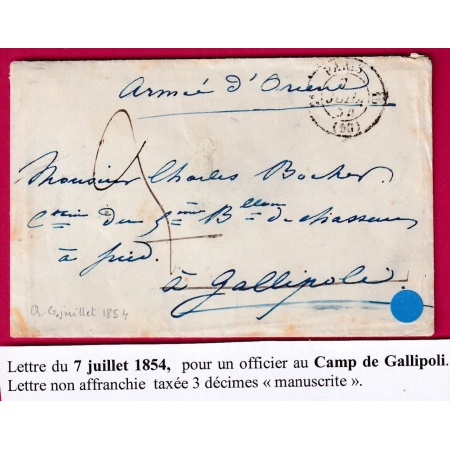 Armée d'Orient
PARIS
7
JUIL
54
(60)
3
Monsieur Charles Bocher
Cne du 5ème Bllon de chasseurs
à pied.
à Gallipoli
R. 6, juillet 1854
Lettre du 7 juillet 1854, pour un officier au Camp de Gallipoli.
Lettre non affranchie taxée 3 décimes « manuscrite ».